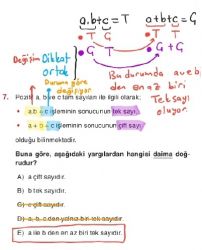 a.b+c = T
a+b+c = G
T T
T T
G T
G + G
Değişim
Dikkat
ortak
Duruma göre
değişiyor
Bu durumda a ve b
den en az biri
Tek sayı
oluyor.
7. Pozitif a, b ve c tam sayıları ile ilgili olarak;
• a.b + c işleminin sonucunun tek sayı,
• a + b + c işleminin sonucunun çift sayı
olduğu bilinmektedir.
Buna göre, aşağıdaki yargılardan hangisi daima doğrudur?
A) a çift sayıdır.
B) b tek sayıdır.
C) c çift sayıdır.
D) a, b, c den yalnız biri tek sayıdır.
E) a ile b den en az biri tek sayıdır.